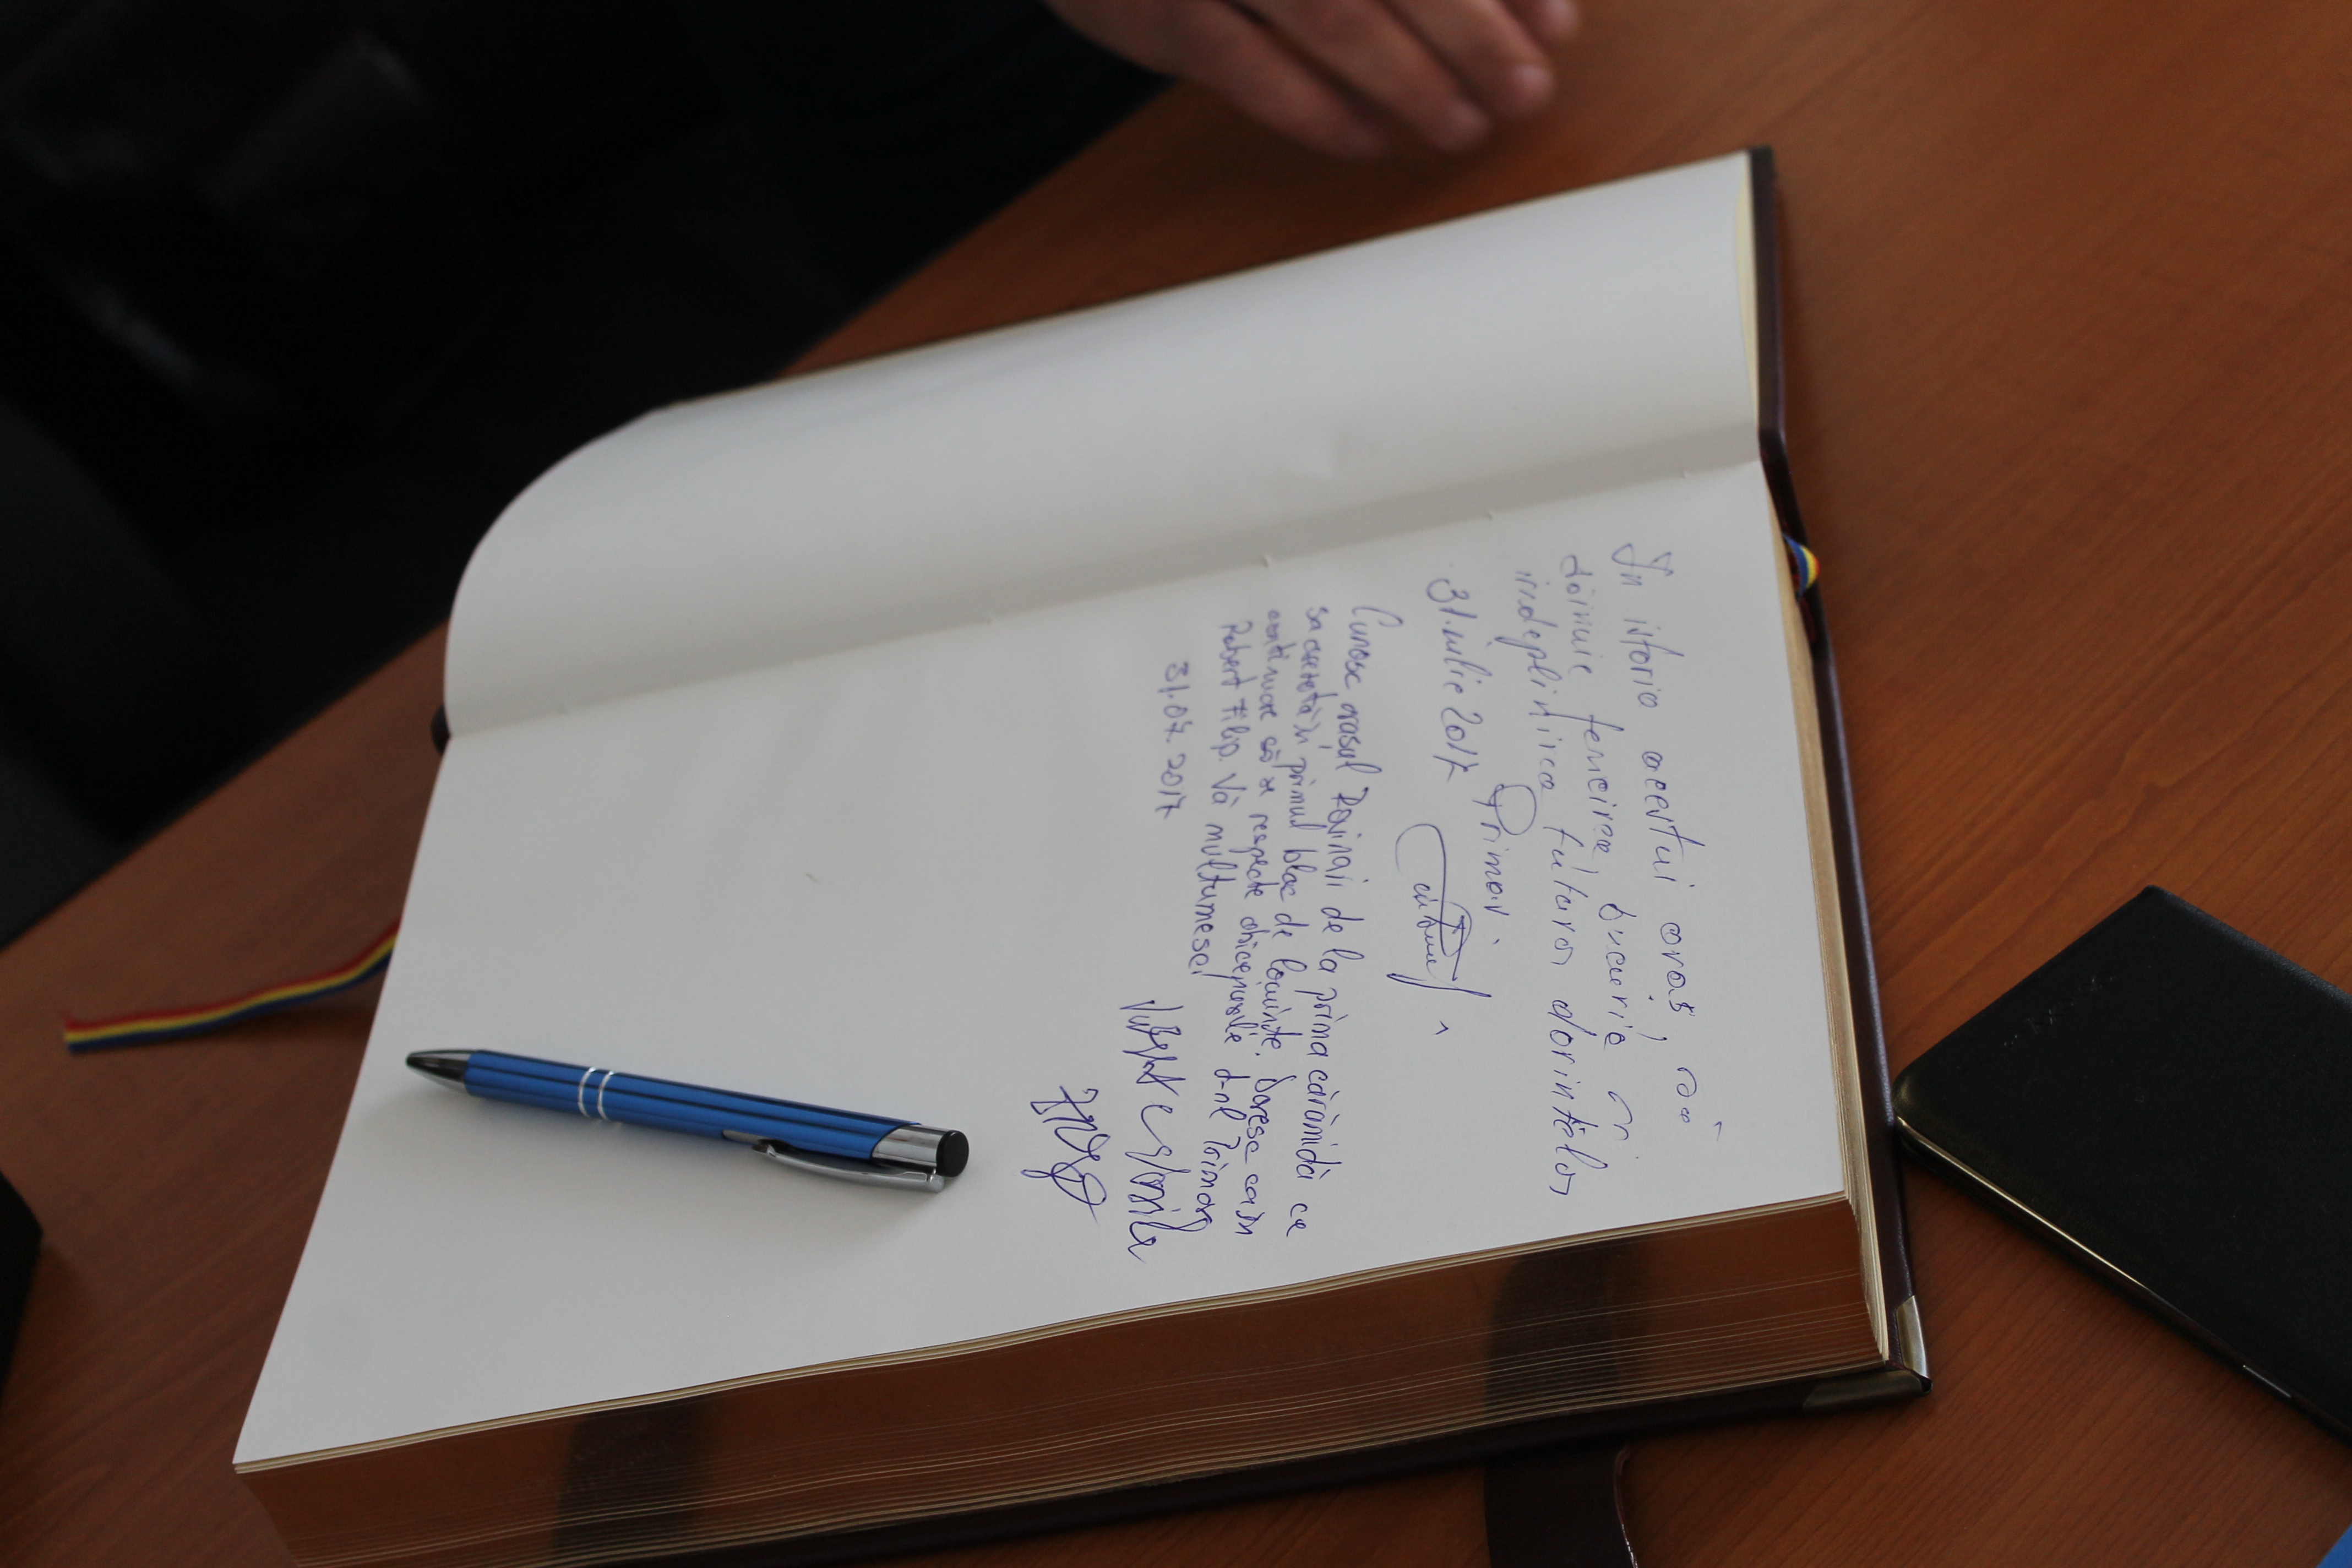 În istoria acestui oraș, să
dăinuie fericirea, bucuria și
îndeplinirea tuturor dorințelor
Primar,
31 iulie 2017
Cunosc orașul Rovinari de la prima cărămidă ce
s-a cercetat și primul bloc de locuințe. Doresc ca în
continuare să se respecte obiceiurile d-nl Primar
Robert Filip. Vă mulțumesc!
31.07.2017